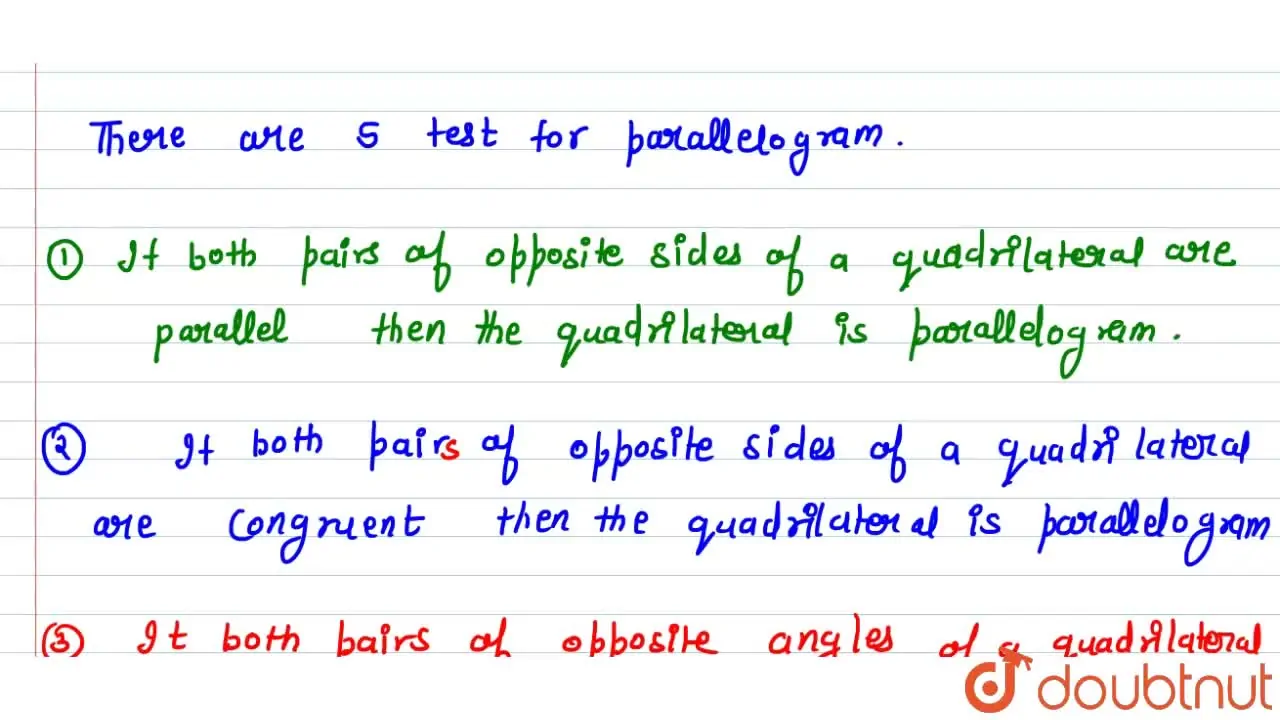 There are 5 test for parallelogram.
① If both pairs of opposite sides of a quadrilateral are
parallel then the quadrilateral is parallelogram.
② If both pairs of opposite sides of a quadrilateral
are congruent then the quadrilateral is parallelogram
③ If both pairs of opposite angles of a quadrilateral
doubtnut